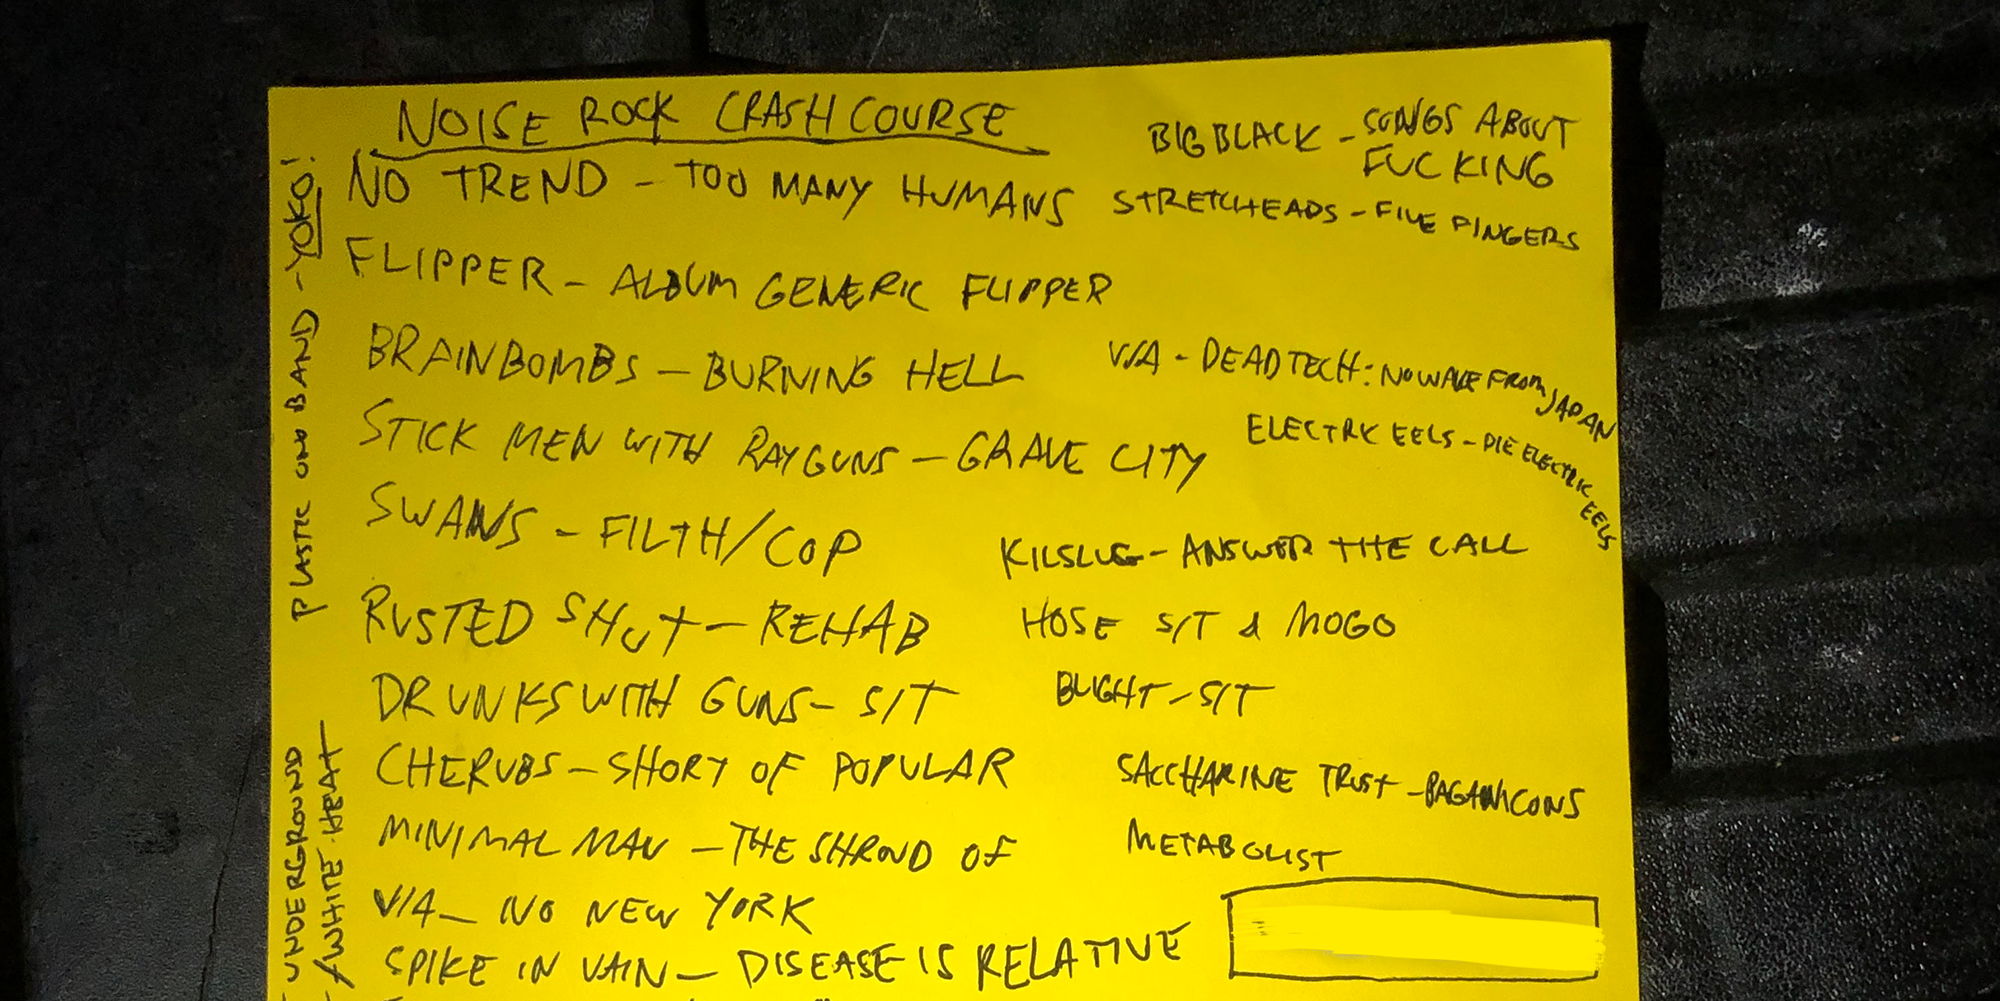 NOISE ROCK CRASH COURSE
NO TREND - TOO MANY HUMANS
FLIPPER - ALBUM GENERIC FLIPPER
BRAINBOMBS - BURNING HELL
STICK MEN WITH RAYGUNS - GRAVE CITY
SWANS - FILTH/COP
RUSTED SHUT - REHAB
DRUNKS WITH GUNS - S/T
CHERUBS - SHORT OF POPULAR
MINIMAL MAN - THE SHROUD OF
V/A - NO NEW YORK
SPIKE IN VAIN - DISEASE IS RELATIVE
BIG BLACK - SONGS ABOUT
FUCKING
STRETCHEADS - FIVE FINGERS
V/A - DEAD TECH: NO WAVE FROM JAPAN
ELECTRIC EELS - DIE ELECTRIC EELS
KILSLUG - ANSWER THE CALL
HOSE S/T & MOGO
BLIGHT - S/T
SACCHARINE TRUST - PAGANICONS
METABOLIST
PLASTIC ONO BAND - YOKO!
UNDERGROUND
/WHITE HEAT